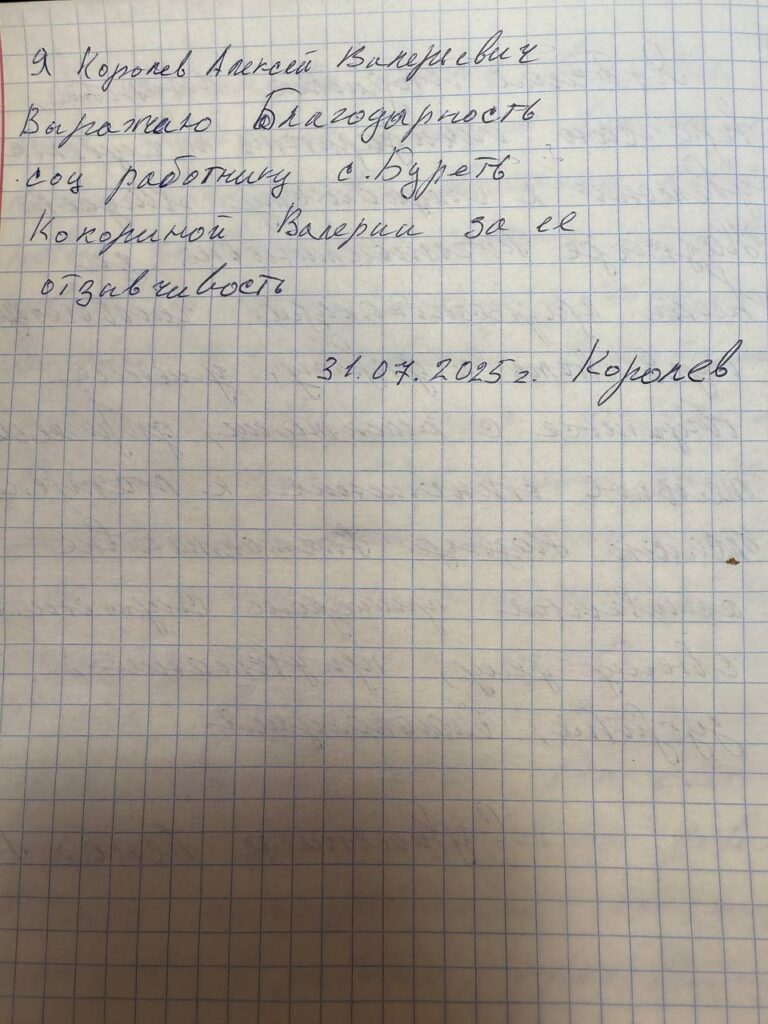 Я Королев Алексей Валерьевич
Выражаю Благодырность
соц работнику с. Буреть
Кокориной Валерии за ее
отзывчивость
31.07.2025 г. Королев